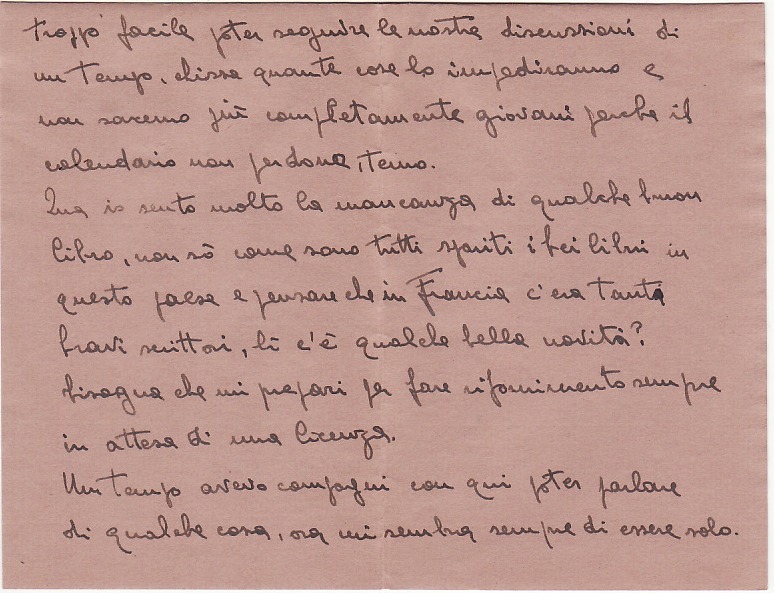 troppo facile poter seguire le nostre discussioni di
un tempo, chissa quante cose lo impediranno e
non saremo più completamente giovani perche il
calendario non perdona, temo.
Qua io sento molto la mancanza di qualche buon
libro, non sò come sono tutti spariti i bei libri in
questo paese e pensare che in Francia c'era tanti
bravi scrittori, lì c'è qualche bella novità?
bisogna che mi prepari per fare rifornimento sempre
in attesa di una licenza.
Un tempo avevo compagni con qui poter parlare
di qualche cosa, ora mi sembra sempre di essere solo.